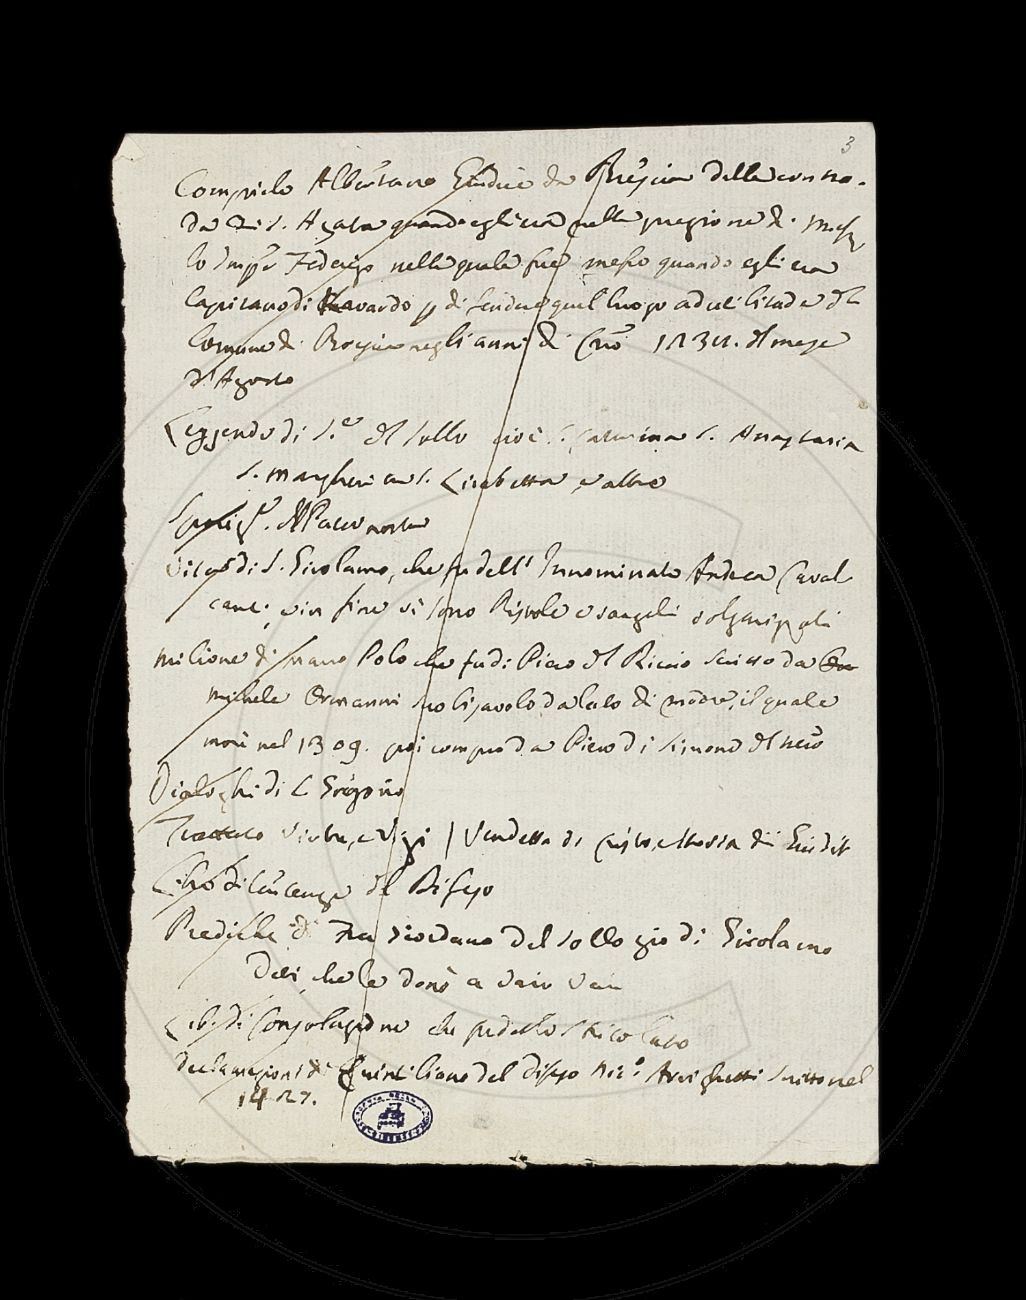 3
Compilò Albertano Giudice da Brescia della contra-
da di S. Agata quando egli era nella pregione di Mes
lo Imp.r Federigo nella quale fue messo quando egli era
Capitano di Gavardo p difendere quel luogo ad utilitade dl
Comune di Brescia negli anni di Cro 1238. dl mese
d'Agosto
Leggende di S.e dl Sollo cioè S. Caterina S. Anastasia
S. Margherita S. Lisabetta, e altre
dl Paternostro
Vita di S. Girolamo, che fu dell' Innominato Andrea Caval
canti, e in fine vi sono Pistole e vangeli volgarizzati
Milione di Marco Polo che fu di Piero dl Riccio scritto da
Michele Ormanni suo bisavolo da lato di madre, il quale
morì nel 1309. poi compro da Piero di Simone dl Nero
Dialoghi di S Gregorio
Trattato Virtù, e Vizi | Vendetta di Cristo, e Storia di Giudit
Libro di Sentenze dl Difeso
Prediche di Fra Giordano del Sollo zio di Girolamo
Deti, che le donò a
Lib. di Consolazione che fu dello Stritolato
Declamazioni di Quintiliano del Difeso Nic.o Arrighetti scritto nel
1427.